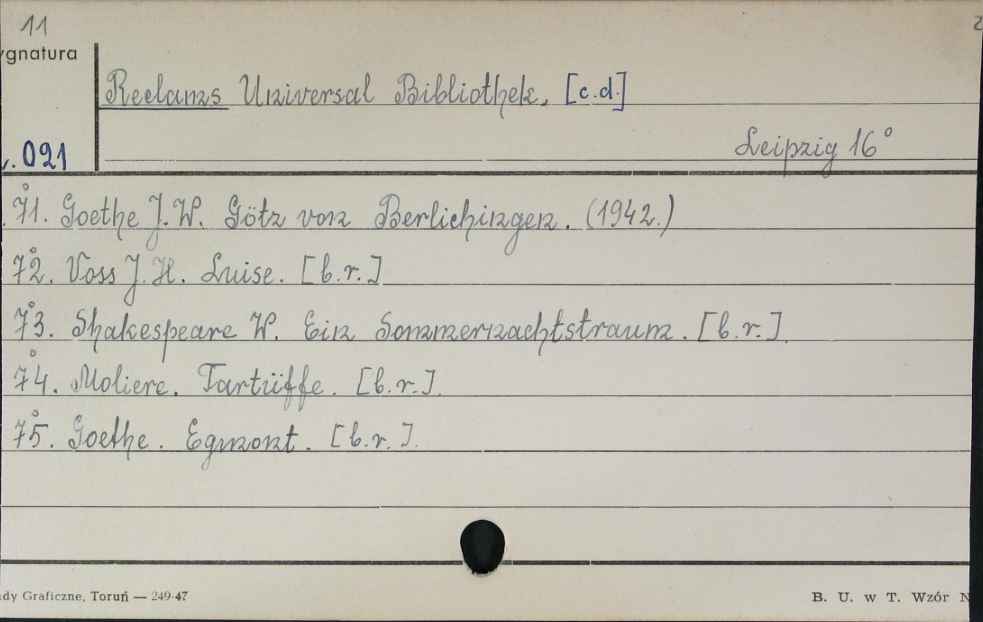 11
2
ygnatura
Reclams Universal Bibliothek, [c.d.]
. 021
Leipzig 16°
71. Goethe J. W. Götz von Berlichingen. (1942.)
72. Voss J. H. Luise. [b.r.]
73. Shakespeare W. Ein Sommernachtstraum. [b.r.].
74. Moliere. Tartüffe. [b.r.].
75. Goethe. Egmont. [b.r.].
dy Graficzne, Toruń — 249-47
B. U. w T. Wzór N